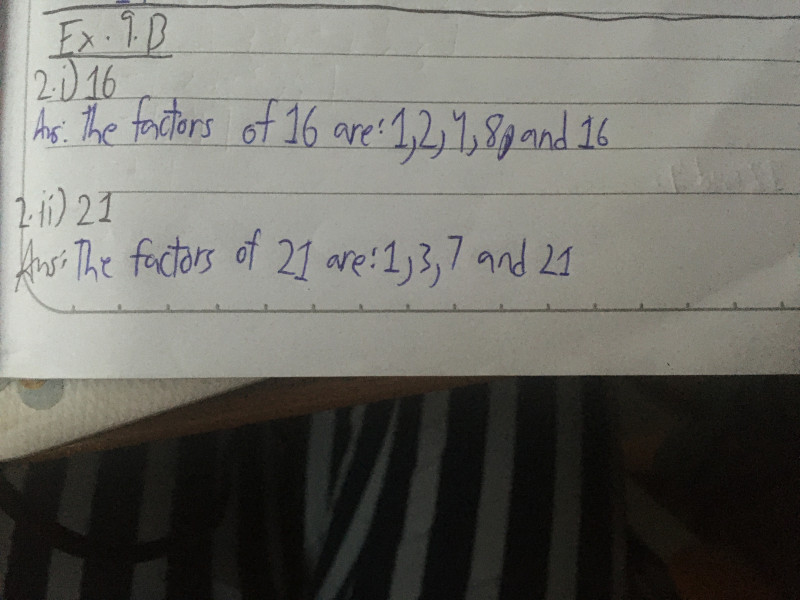 Ex. 9.B
2.i) 16
Ans: The factors of 16 are: 1, 2, 4, 8, and 16
2.ii) 21
Ans: The factors of 21 are: 1, 3, 7 and 21